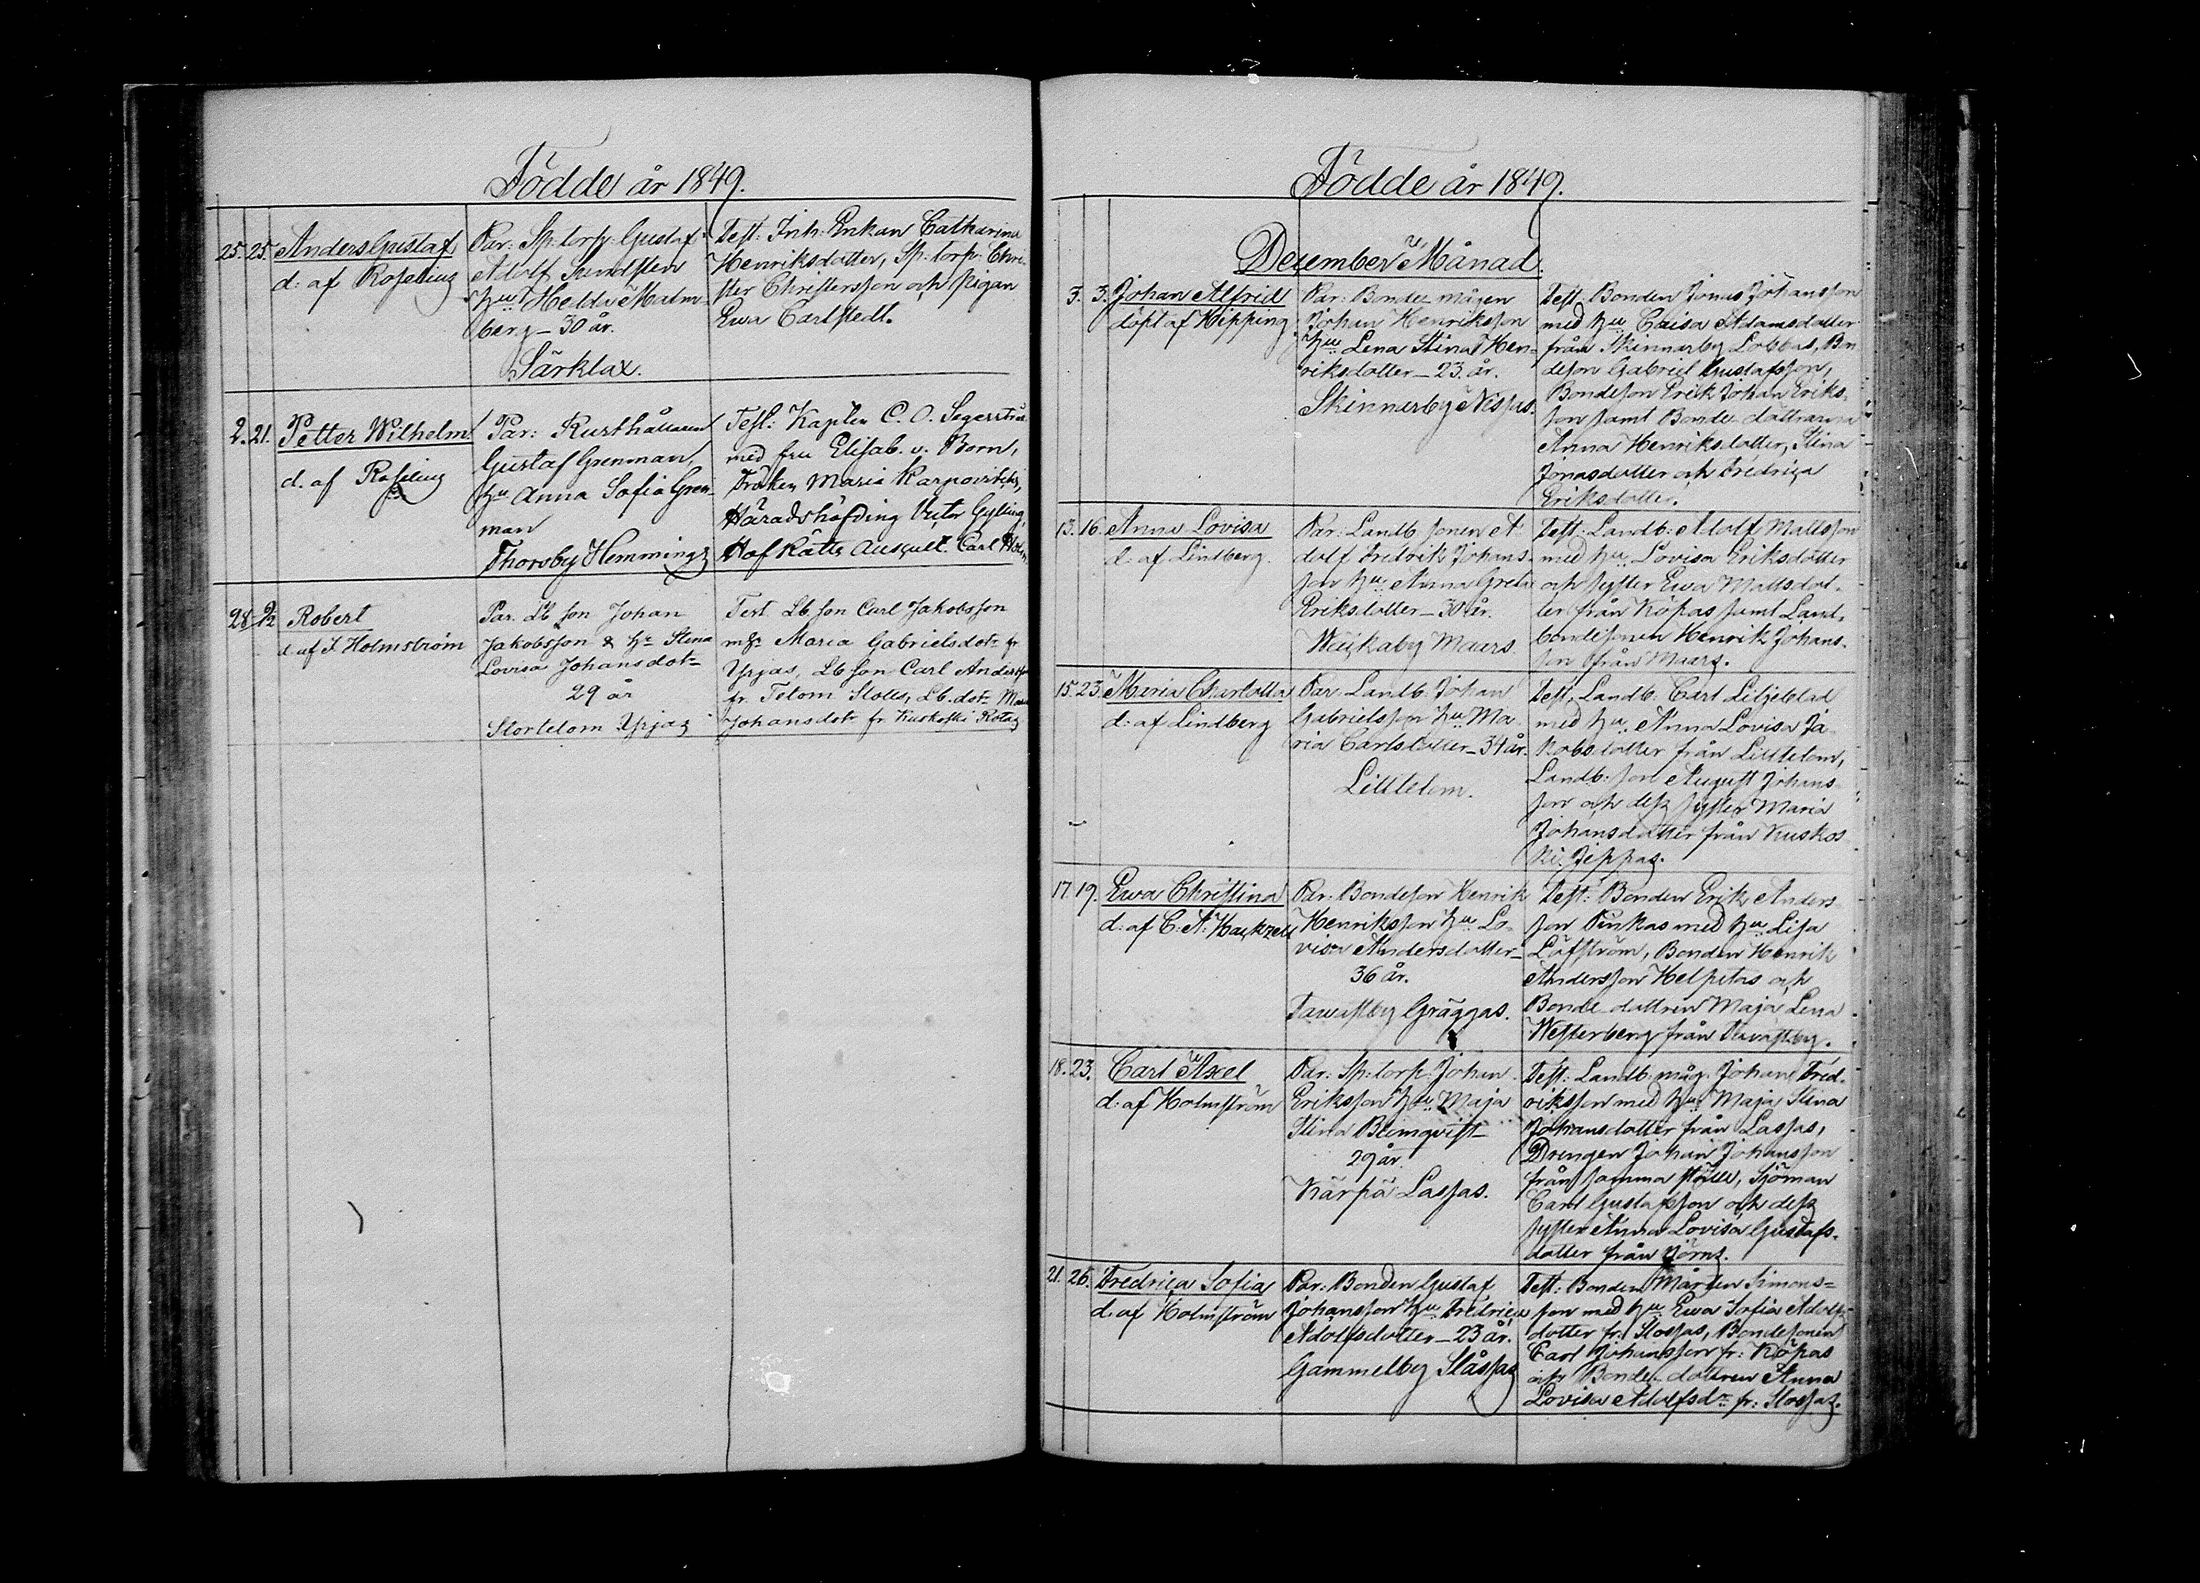 Födde år 1849.
25. 25. Anders Gustaf
d: af Roseling
Par: Sp: torp: Gustaf
Adolf Sundsten
hu Hedda Malm-
berg – 30 år.
Särklax.
Test: Inh: Enkan Catharina
Henriksdotter, Sp: torp: Chri-
ster Christersson och Pigan
Ewa Carlstedt.
2. 21. Petter Wilhelm
d. af Roseling
Par: Rusthållaren
Gustaf Grenman,
hu Anna Sofia Gren-
man
Thorsby Hemmings
Test: Kapten C. O. Segerstråle
med fru Elisab. v. Born,
Fröken Maria
Häradshöfding Victor Gylling,
Hof Rätts Auscult. Carl
28 2/12 Robert
d af J Holmström
Par. Lb son Johan
Jakobsson & hu Stina
Lovisa Johansdotr
29 år
Stortelom Yrjas
Test Lb son Carl Jakobsson
m hu Maria Gabrielsdotr fr
Yrjas, Lb son Carl Andersson
fr. Telom Stolls, Lb. dotr Maria
Johansdotr fr Kuskoski Rotas
Födde år 1849.
December Månad.
3. 3. Johan Alfrid
döpt af Hipping
Par: Bonde mågen
Johan Henriksson
hu Lena Stina Hen-
riksdotter – 23. år.
Skinnarby Nissas.
Test: Bonden Jonas Johansson
med hu Caisa Adamsdotter
från Skinnarby Lobbas, Bon
deson Gabriel Gustafsson,
Bondeson Erik Johan Eriks-
son samt Bonde döttrarna
Anna Henriksdotter, Stina
Jonasdotter och Fredrica
Eriksdotter.
13. 16. Anna Lovisa
d: af Lindberg
Par: Landb sonen A
dolf Fredrik Johans-
son hu Anna Greta
Eriksdotter – 30 år.
Wäckaby Maars
Test: Landb: Adolf Mattsson
med hu Lovisa Eriksdotter
och syster Ewa Mattsdot-
ter från Köpas samt Land-
bondesonen Henrik Johans-
son från Maars.
15. 23. Maria Charlotta
d: af Lindberg
Par: Landb: Johan
Gabrielsson hu Ma-
ria Carlsdotter – 34 år.
Lilltelom.
Test: Landb: Carl Liljeblad
med hu Anna Lovisa Ja-
kobsdotter från Lilltelom,
Landb: son August Johans-
son och dess syster Maria
Johansdotter från Kuskos
ki Jeppas.
17. 19. Ewa Christina
d: af C. A. Hackzell
Par: Bondeson Henrik
Henriksson hu Lo-
visa Andersdotter –
36 år.
Tawistby Gräggas.
Test: Bonden Erik Anders-
son Pinkas med hu Lisa
Löfström, Bonden Henrik
Andersson Helpitas och
Bonde dottren Maja Lena
Westerberg från Tavastby.
18. 23. Carl Axel
d: af Holmström
Par: Sp: torp: Johan
Eriksson hu Maja
Stina Blimqvist
29 år.
Kärpä Lassas.
Test: Landb: måg. Johan Fred-
riksson med hu Maja Stina
Johansdotter från Lassas,
Drengen Johan Johansson
från samma ställe, Sjöman
Carl Gustafsson och dess
syster Anna Lovisa Gustafs-
dotter från Jörns.
21. 26. Fredrica Sofia
d: af Holmström
Par: Bonden Gustaf
Johansson hu Fredrica
Adolfsdotter – 23 år.
Gammelby Slässas
Test: Bonden Mårten Simons-
son med hu Ewa Sofia Adolfs-
dotter fr: Slossas, Bondesonen
Carl Johansson fr: Köpas
och Bonde dottren Anna
Lovisa Adolfsdr fr: Slossas.